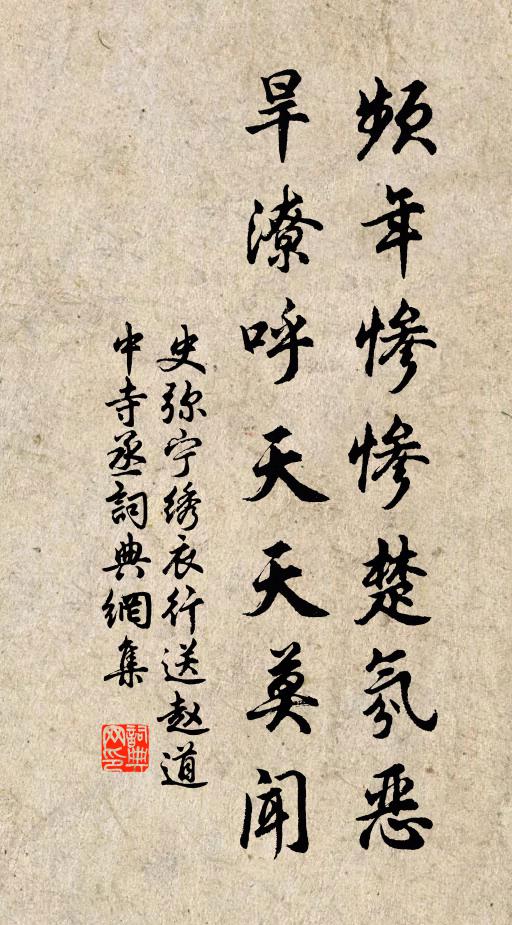 频年惨惨楚氛恶
旱潦呼天天莫闻
史弥宁绣衣行送赵道
中寺丞詞典網集
詞典网印